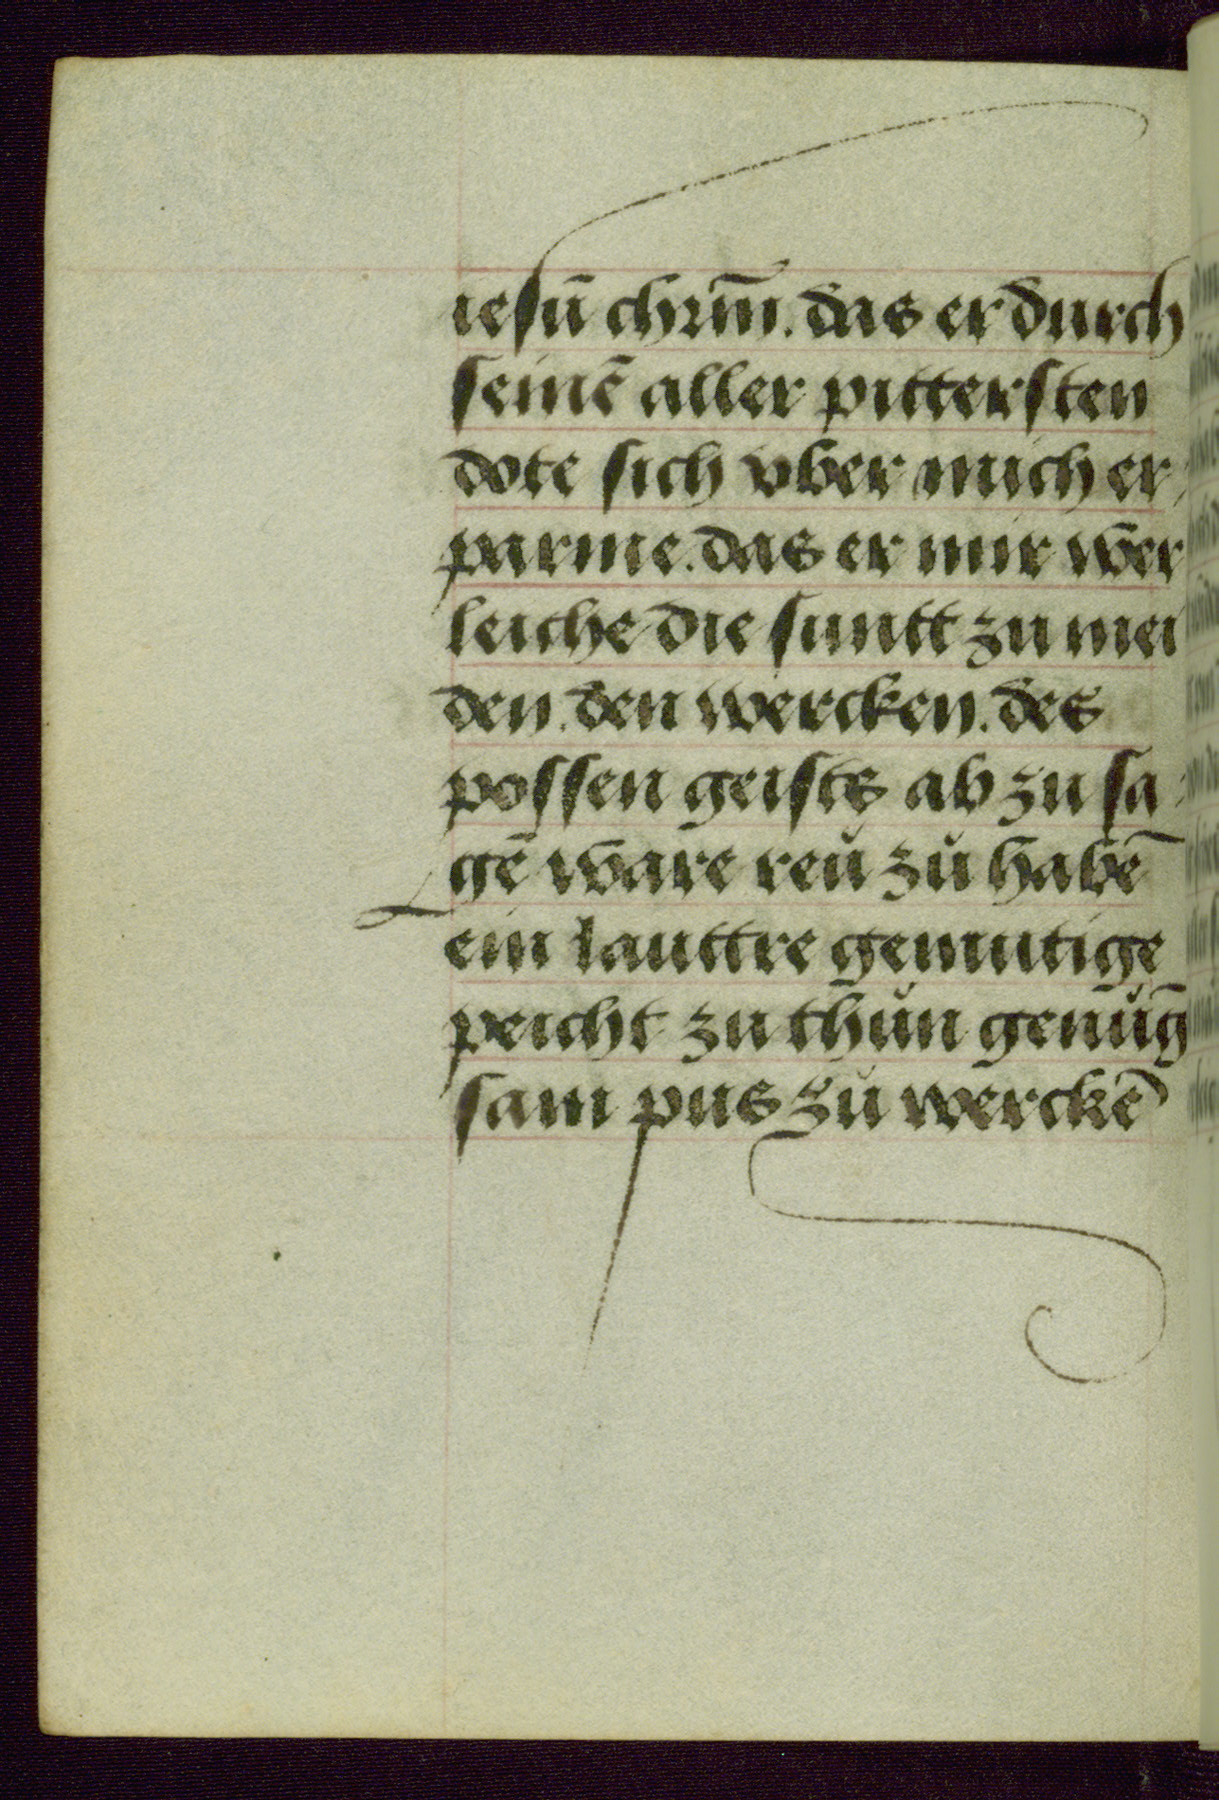 iesu᷑ chrm̄. das er durch
seinē aller pittersten
dote sich vber mich er
parme. das er mir wer
leiche die suntt zu mei
den. den wercken. des
possen geists ab zu sa
gē ware reŭ zŭ habē
ein lauttre gemutige
peicht zu thŭn genŭg
sam pus zŭ werckē